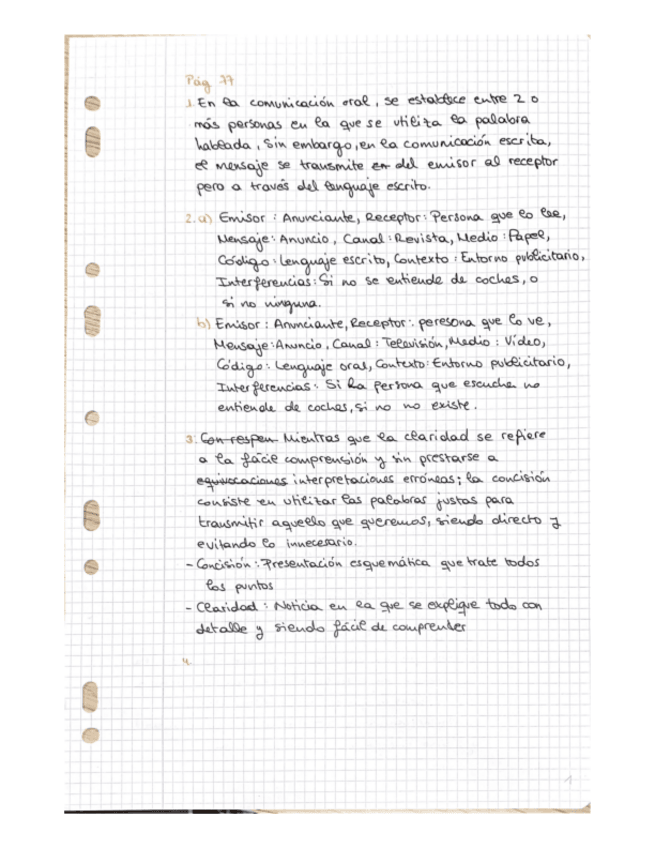 Pág 77
1. En la comunicación oral, se establece entre 2 o
más personas en la que se utiliza la palabra
hablada, sin embargo, en la comunicación escrita,
el mensaje se transmite en del emisor al receptor
pero a través del lenguaje escrito.
2. a) Emisor: Anunciante, Receptor: Persona que lo lee,
Mensaje: Anuncio, Canal: Revista, Medio: Papel,
Código: Lenguaje escrito, Contexto: Entorno publicitario,
Interferencias: Si no se entiende de coches, o
si no ninguna.
b) Emisor: Anunciante, Receptor: peresona que lo ve,
Mensaje: Anuncio, Canal: Televisión, Medio: Vídeo,
Código: Lenguaje oral, Contexto: Entorno publicitario,
Interferencias: Si la persona que escucha no
entiende de coches, si no no existe.
3. Con respen Mientras que la claridad se refiere
a la fácil comprensión y sin prestarse a
equivocaciones interpretaciones erróneas; la concisión
consiste en utilizar las palabras justas para
transmitir aquello que queremos, siendo directo y
evitando lo innecesario.
- Concisión: Presentación esquemática que trate todos
los puntos
- Claridad: Noticia en la que se explique todo con
detalle y siendo fácil de comprender
4.
1